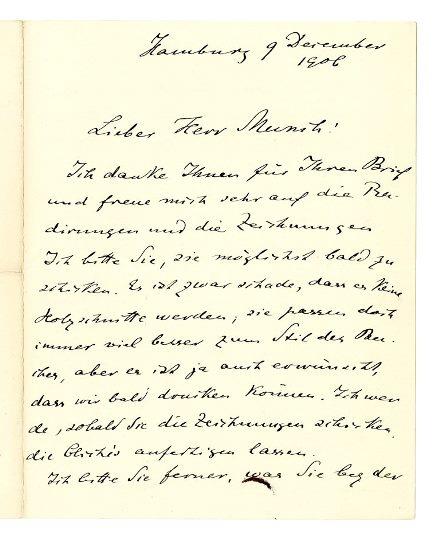 Hamburg 9 December
1906
Lieber Herr Munch!
Ich danke Ihnen für Ihren Brief
und freue mich sehr auf die Ra-
dirungen und die Zeichnungen
Ich bitte Sie, sie möglichst bald zu
schicken. Es ist zwar schade, dass es keine
Holzschnitte werden; sie passen doch
immer viel besser zum Stil des Bu-
ches, aber es ist ja auch erwünscht,
dass wir bald drucken können. Ich wer-
de, sobald Sie die Zeichnungen schicken,
die Clichés anfertigen lassen.
Ich bitte Sie ferner, was Sie bey der